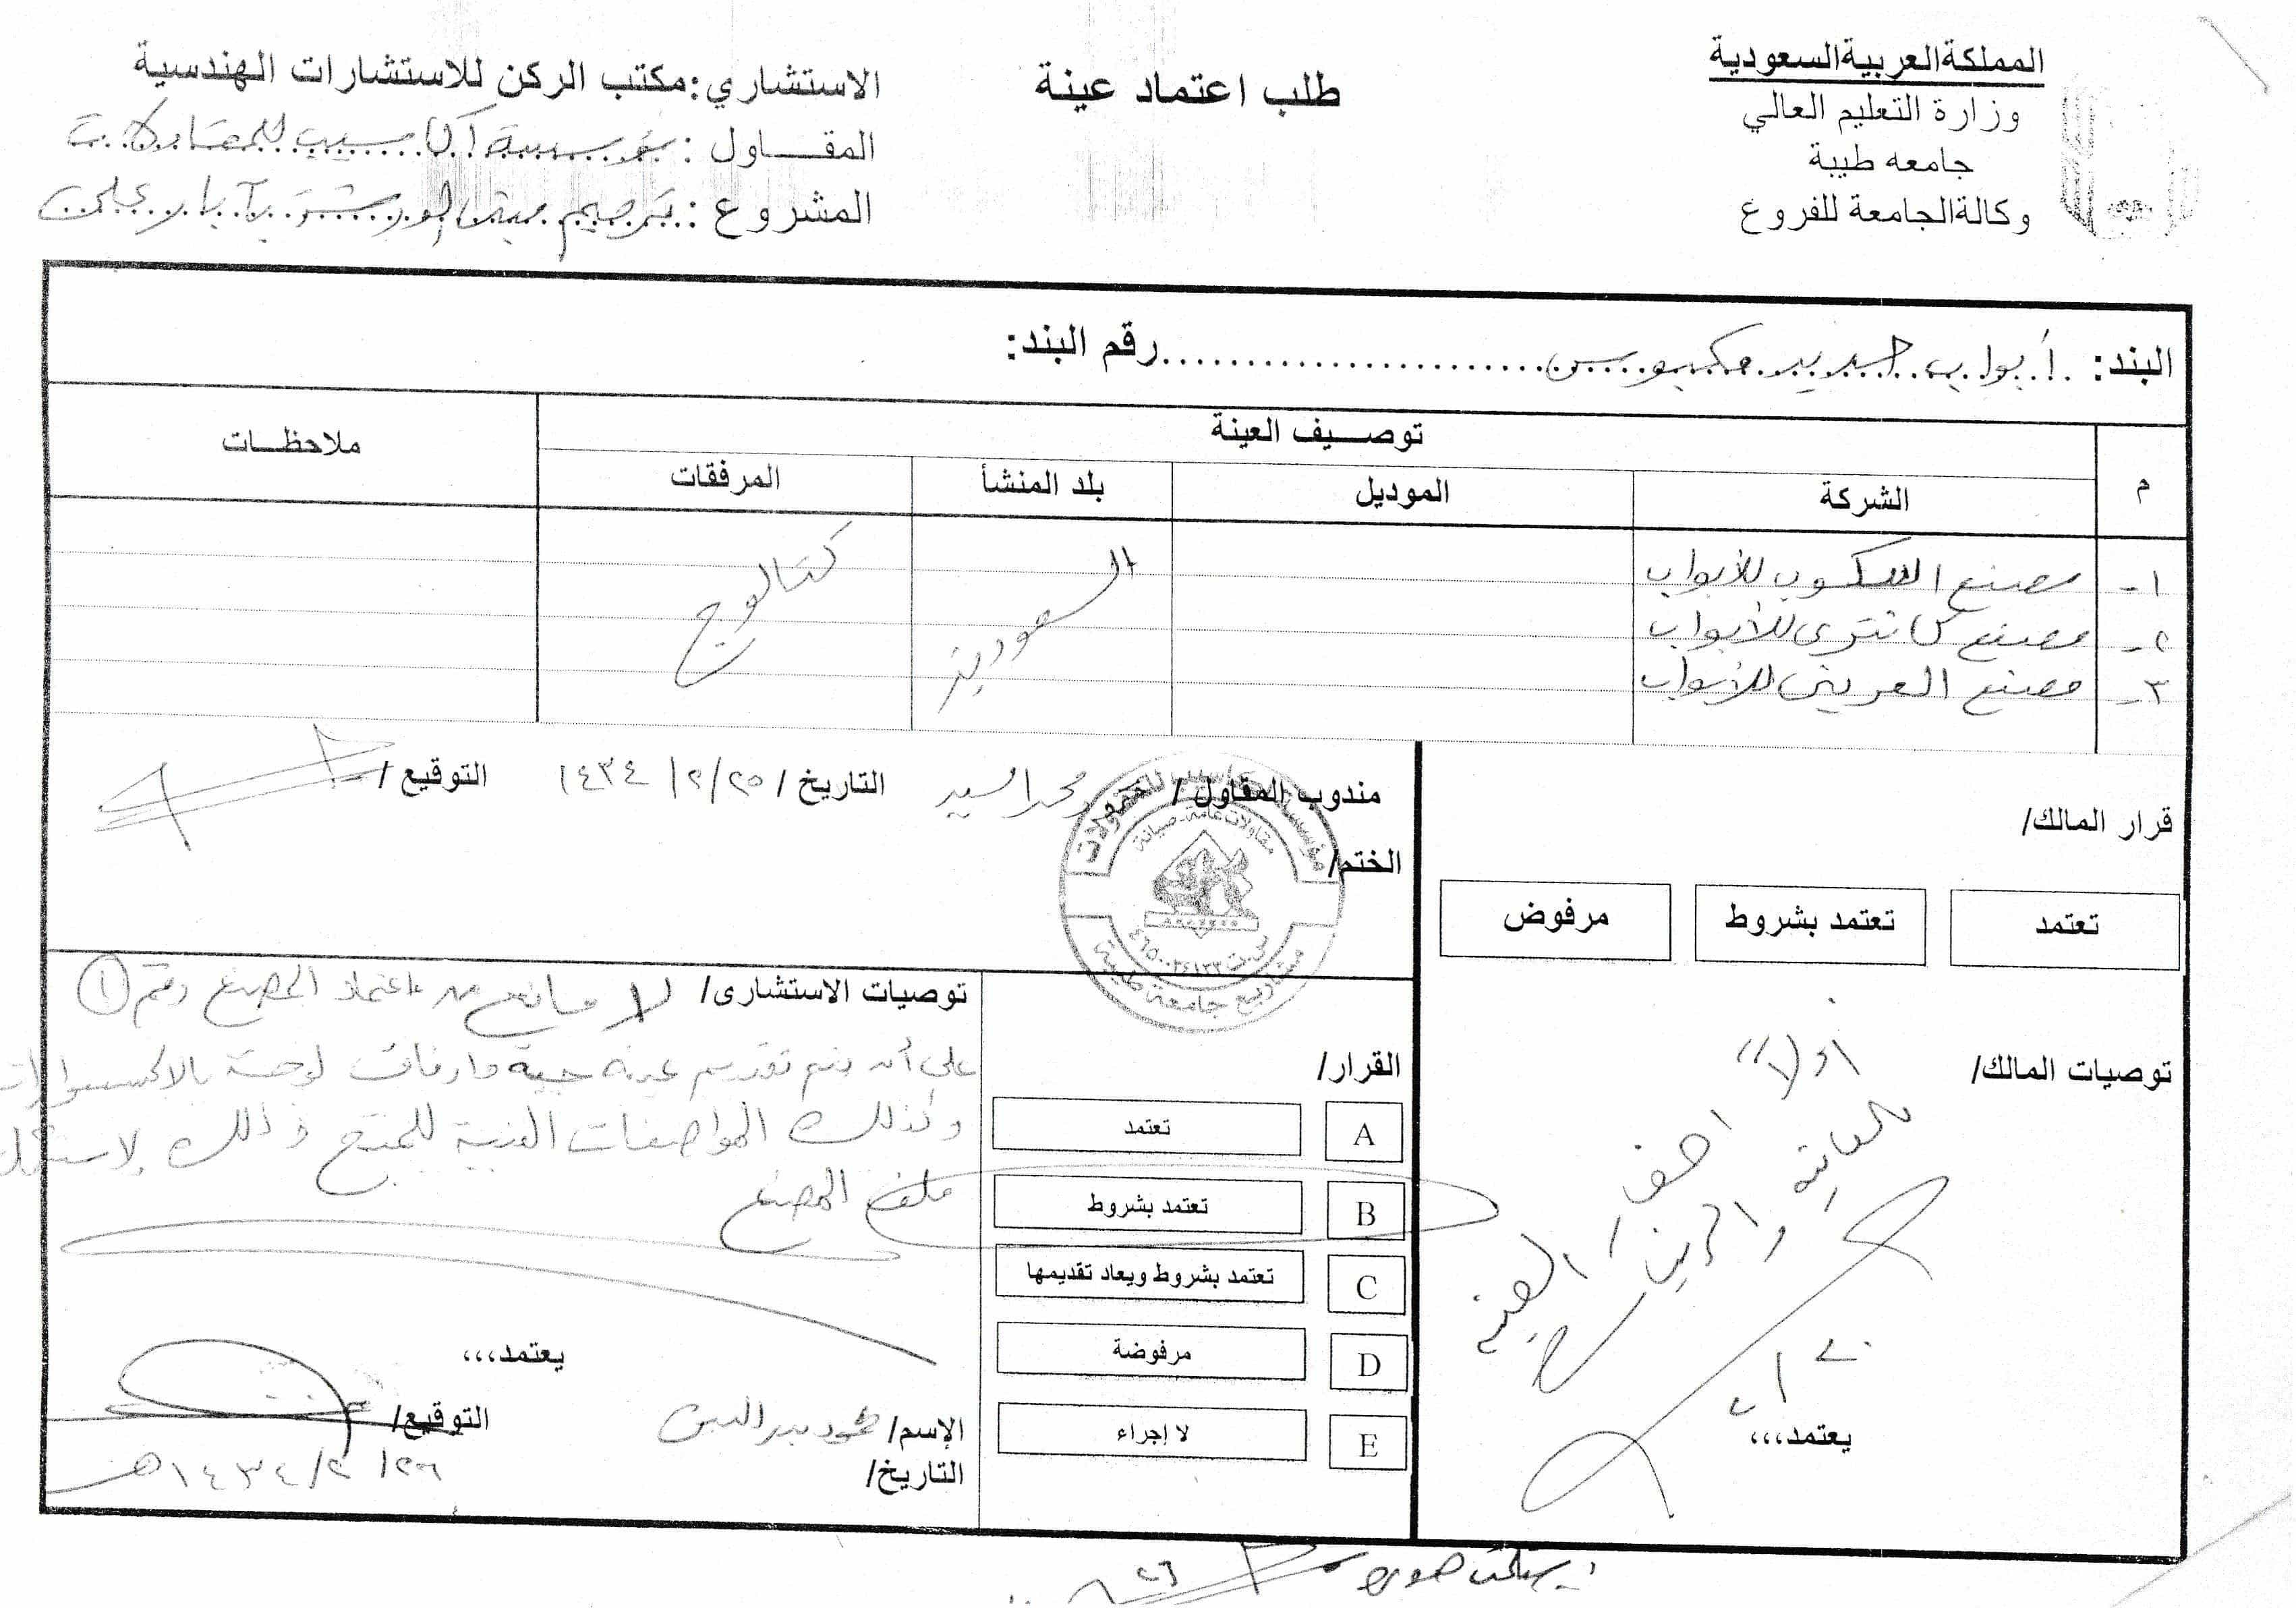 المملكة العربية السعودية
وزارة التعليم العالي
جامعه طيبة
وكالة الجامعة للفروع
طلب اعتماد عينة
الاستشاري: مكتب الركن للاستشارات الهندسية
المقـــــاول : مؤسسة أكاسيب للمقاولات
المشروع : ترميم مبنى الورشة بآبار علي
البند: أبواب حديد مكبوس رقم البند:
م
توصـــيف العينة
ملاحظـــات
الشركة
الموديل
بلد المنشأ
المرفقات
١- مصنع السكوب للأبواب
٢- مصنع كانتري للأبواب
٣- مصنع العربي للأبواب
السعودية
كتالوج
قرار المالك/
تعتمد
تعتمد بشروط
مرفوض
توصيات المالك/
أولاً
يعتمد،،،
مندوب المقاول / محمد السيد
التاريخ / ٢٥/٢/ ١٤٣٤
التوقيع /
الختم/
مقاولات عامة - صيانة
مشاريع جامعة طيبة
القرار/
A تعتمد
B تعتمد بشروط
C تعتمد بشروط ويعاد تقديمها
D مرفوضة
E لا إجراء
توصيات الاستشارى/ لا مانع من اعتماد المصنع رقم ١
على أن يتم تقديم عينة حية وارفاق لوحة بالاكسسوارات
وكذلك المواصفات الفنية للمنتج وذلك لاستكمال
ملف المصنع
يعتمد،،،
الإسم/ محمود بدر الدين
التوقيع/
التاريخ/ ٢٦/ ٢/ ١٤٣٤هـ
استلمت صورة